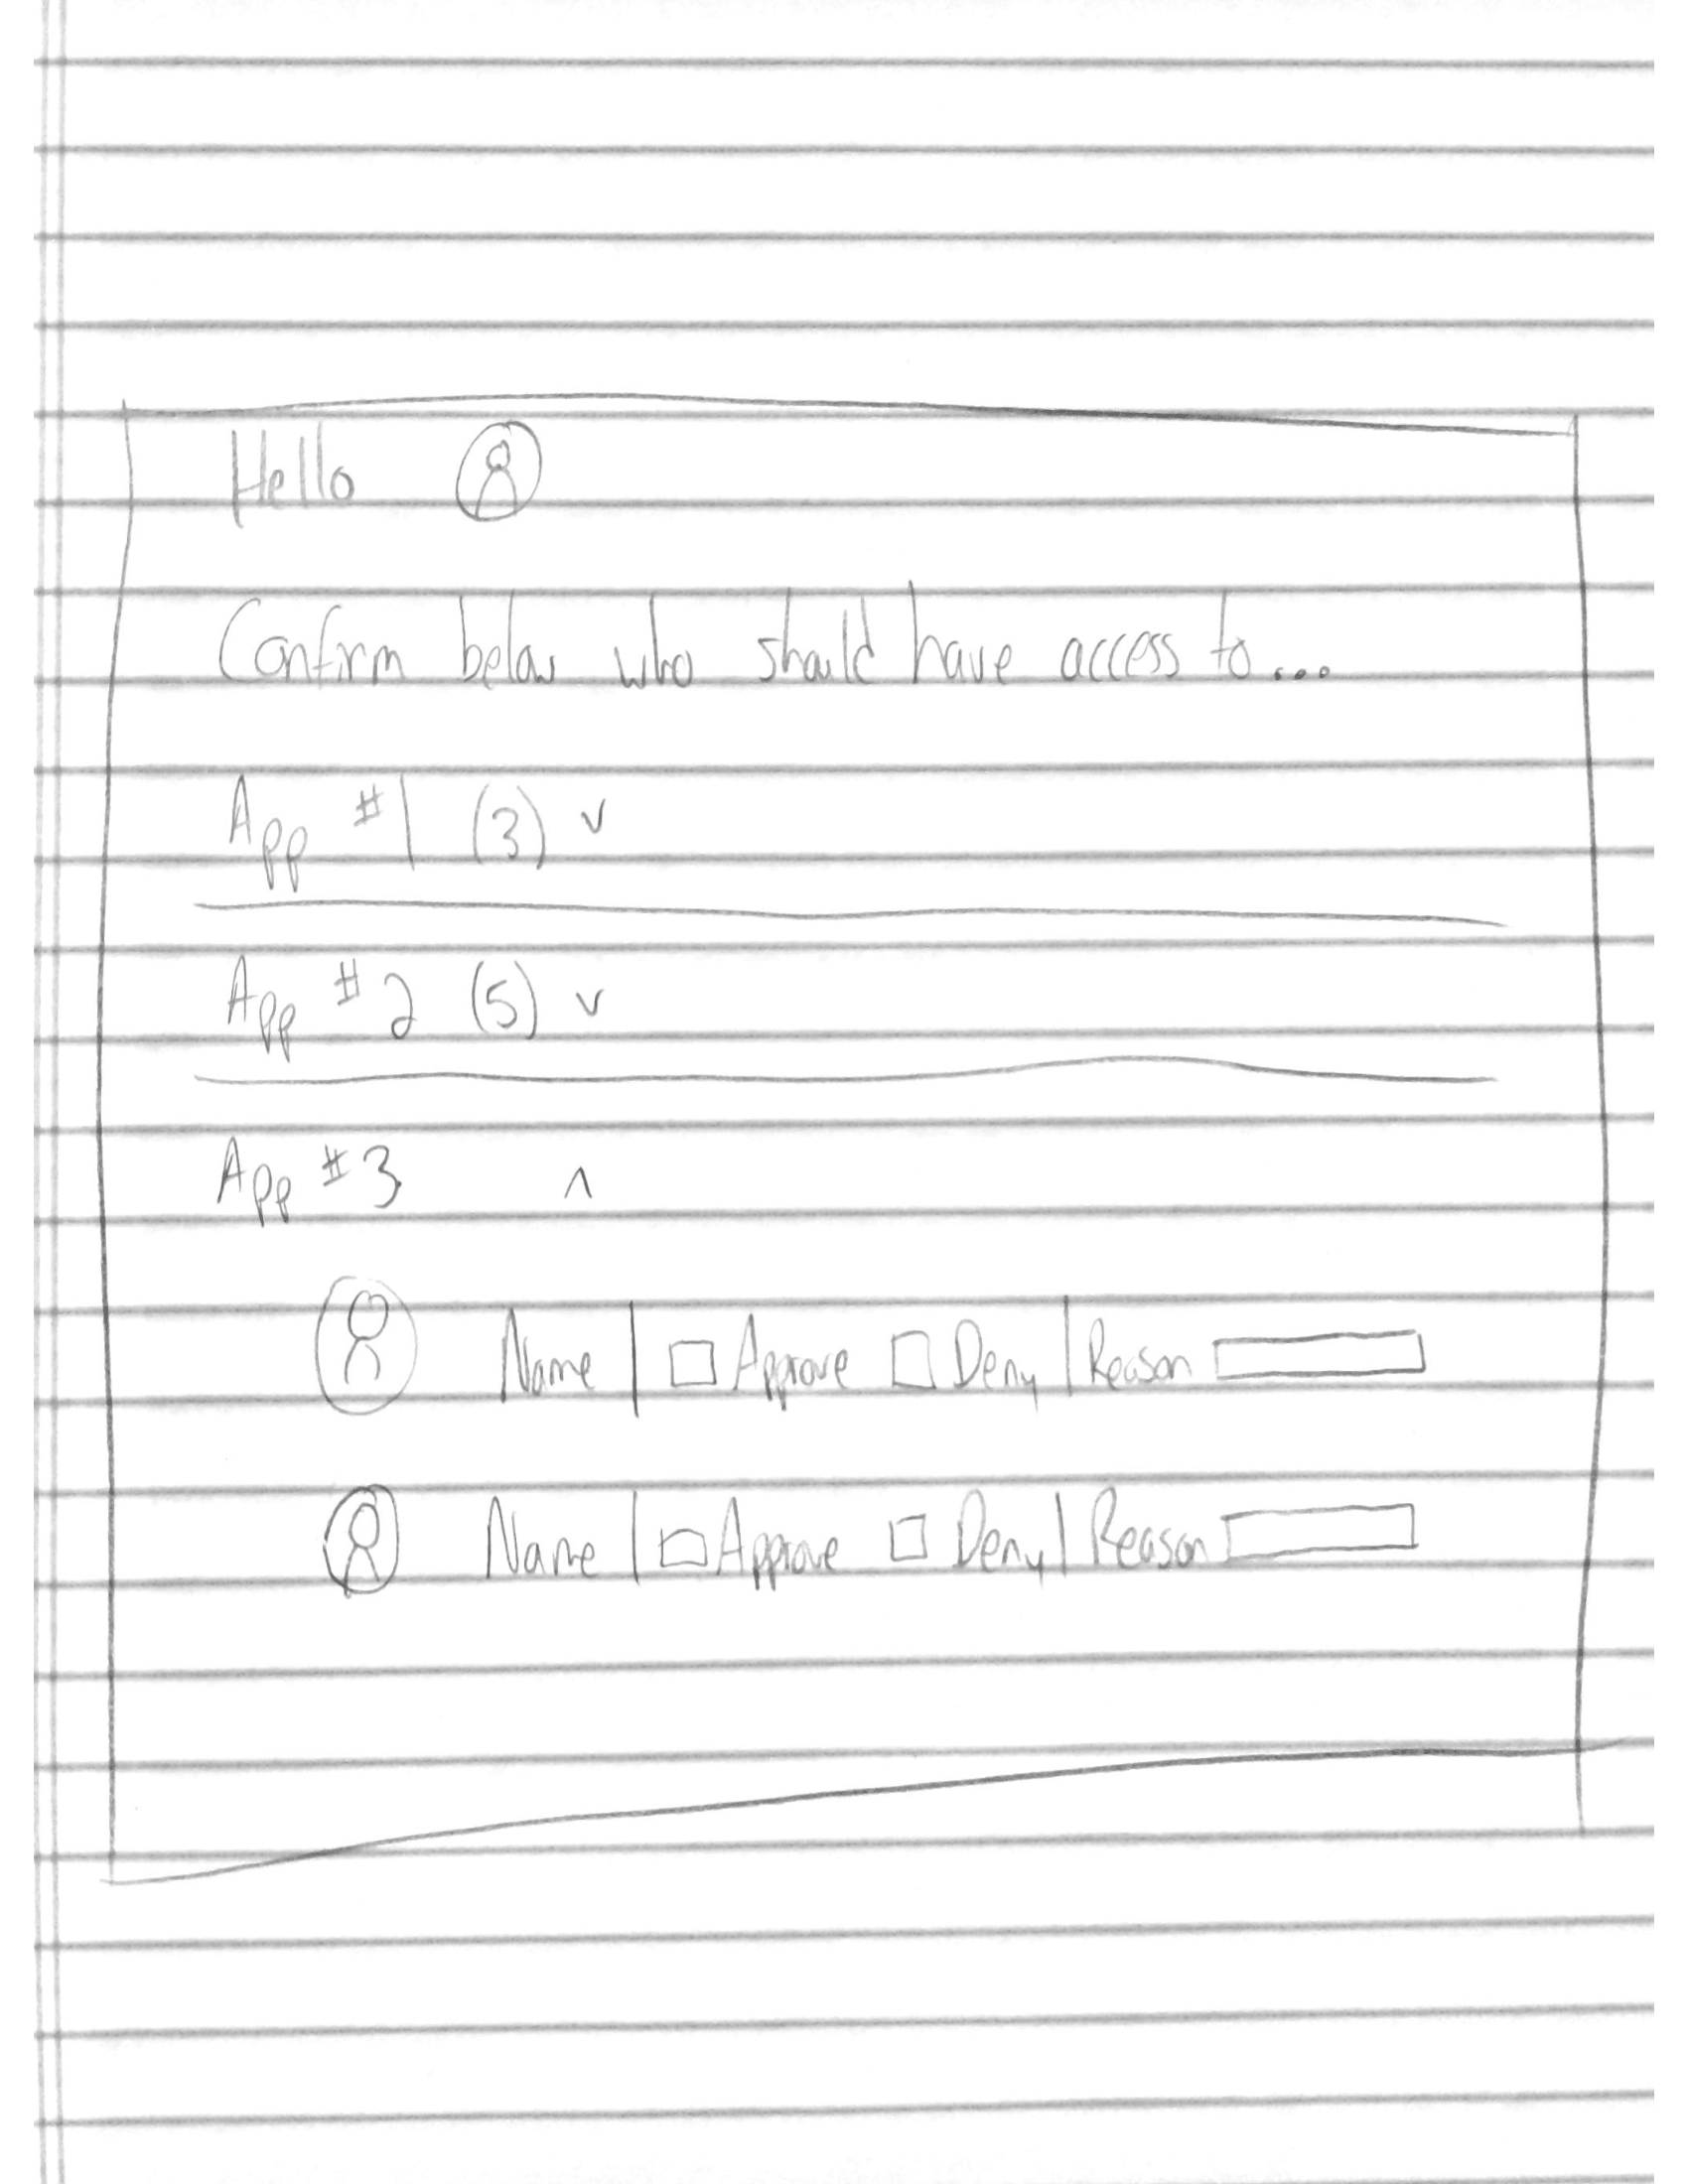 Hello
Confirm below who should have access to...
App #1 (3) v
App #2 (5) v
App #3 ^
Name | Approve Deny | Reason
Name | Approve Deny | Reason